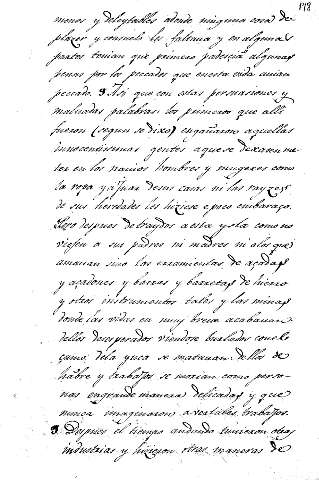 178
menos y deleytables adonde ninguna cosa de
plazer y consuelo les faltaria y en algunas
partes tenian que primero padescia algunas
penas por los pecados que en esta vida avian
pecado. 3. Asi que con estas persuasiones y
malvadas palabras los primeros que alli
fueron (segun se dixo) engañaron aquellas
innocentissimas gentes a que se dexaron me-
ter en los navios hombres y mugeres como
la ropa y ajuar de sus casas ni las rayzes
de sus heredades les hiziese empres embaraço.
Pero despues de traydos a esta ysla como no
viesen a sus padres ni madres ni a los que
amavan sino las erramientas de açadas
y açadones y barras y barretas de hierro
y otros instrumentos tales y las minas
donde las vidas en muy breve acabavan
dellos desesperados viendose burlados con el
çumo de la yuca se matavan dellos de
hābre y trabajos se morian como perso-
nas en grande manera delicadas y que
nunca imaginaron aver tales trabajos.
3. Despues el tiempo andando tuvieron otras
industrias y hizieron otras maneras de